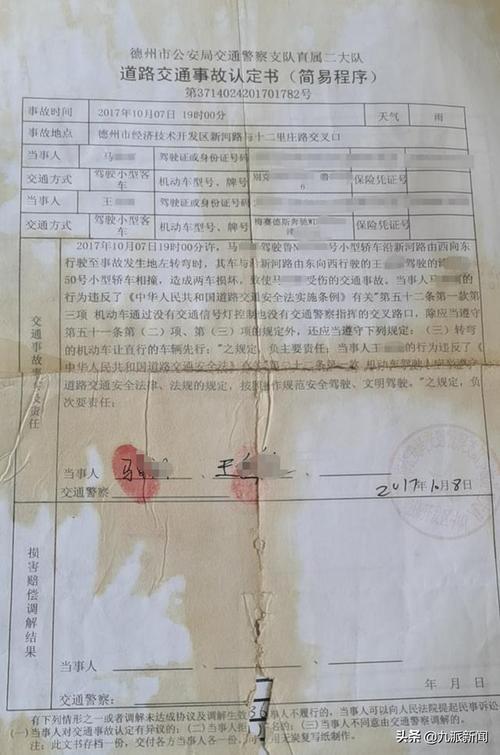 德州市公安局交通警察支队直属二大队
道路交通事故认定书（简易程序）
第3714024201701782号
事故时间 2017年10月07日 19时00分 天气 雨
事故地点 德州市经济技术开发区新河路与十二里庄路交叉口
当事人 马 驾驶证或身份证号码
交通方式 驾驶小型客车 机动车型号、牌号 别克 鲁 6 保险凭证号
当事人 王 驾驶证或身份证号码
交通方式 驾驶小型客车 机动车型号、牌号 梅赛德斯奔驰 保险凭证号
交通事故事实及责任
2017年10月07日19时00分许，马 驾驶鲁N 号小型轿车沿新河路由西向东
行驶至事故发生地左转弯时，其车与沿新河路由东向西行驶的王 驾驶的
50号小型轿车相撞，造成两车损坏，致使马 受伤的交通事故。当事人马
的行为违反了《中华人民共和国道路交通安全法实施条例》有关"第五十二条第一款第
三项 机动车通过没有交通信号灯控制也没有交通警察指挥的交叉路口，除应当遵守
第五十一条第（二）项、第（三）项的规定外，还应当遵守下列规定：（三）转弯
的机动车让直行的车辆先行；"之规定，负主要责任；当事人王 的行为违反了《
中华人民共和国道路交通安全法》 第二十二条第一款 机动车驾驶人应当遵守
道路交通安全法律、法规的规定，按照操作规范安全驾驶、文明驾驶。"之规定，负
次要责任；
当事人 马 、 王 、
交通警察 2017年10月8日
损害赔偿调解结果
当事人 、 、
交通警察： 年 月 日
有下列情形之一或者调解未达成协议及调解生效 事人不履行的，当事人可以向人民法院提起民事诉讼
（一）当事人对交通事故认定有异议的；（二）当事人拒 名的；（三）当事人不同意由交通警察调解的。
注：此文书存档一份，交付各方当事人各一份， 用无炭复写纸制作。
头条 @九派新闻